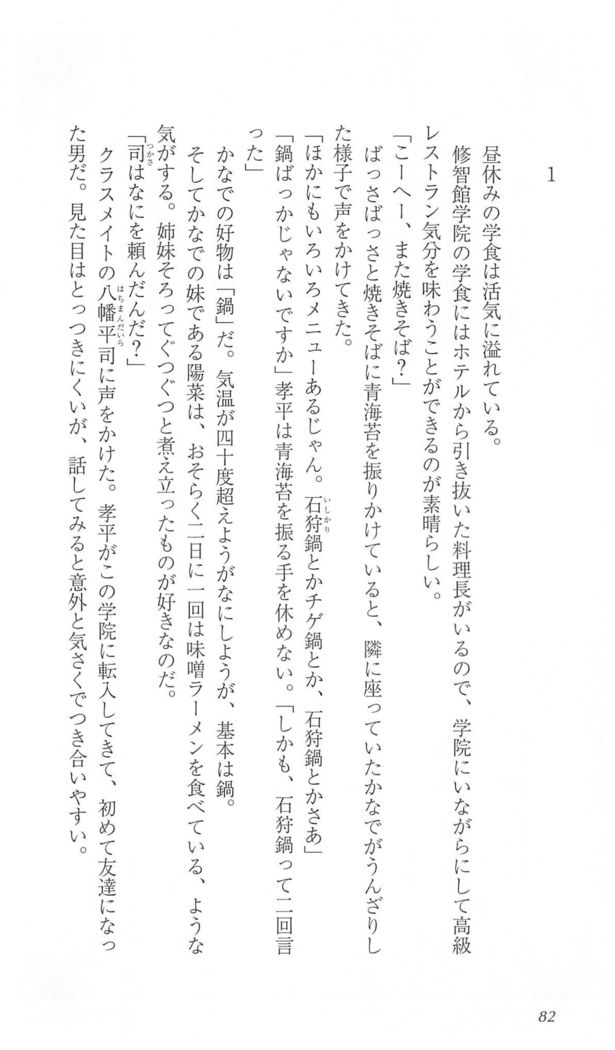 1
昼休みの学食は活気に溢れている。
修智館学院の学食にはホテルから引き抜いた料理長がいるので、学院にいながらにして高級
レストラン気分を味わうことができるのが素晴らしい。
「こーへー、また焼きそば？」
ばっさばっさと焼きそばに青海苔を振りかけていると、隣に座っていたかなでがうんざりし
た様子で声をかけてきた。
「ほかにもいろいろメニューあるじゃん。石狩鍋とかチゲ鍋とか、石狩鍋とかさあ」
「鍋ばっかじゃないですか」孝平は青海苔を振る手を休めない。「しかも、石狩鍋って二回言
った」
かなでの好物は「鍋」だ。気温が四十度超えようがなにしようが、基本は鍋。
そしてかなでの妹である陽菜は、おそらく二日に一回は味噌ラーメンを食べている、ような
気がする。姉妹そろってぐつぐつと煮え立ったものが好きなのだ。
「司はなにを頼んだんだ？」
クラスメイトの八幡平司に声をかけた。孝平がこの学院に転入してきて、初めて友達になっ
た男だ。見た目はとっつきにくいが、話してみると意外と気さくでつき合いやすい。
82